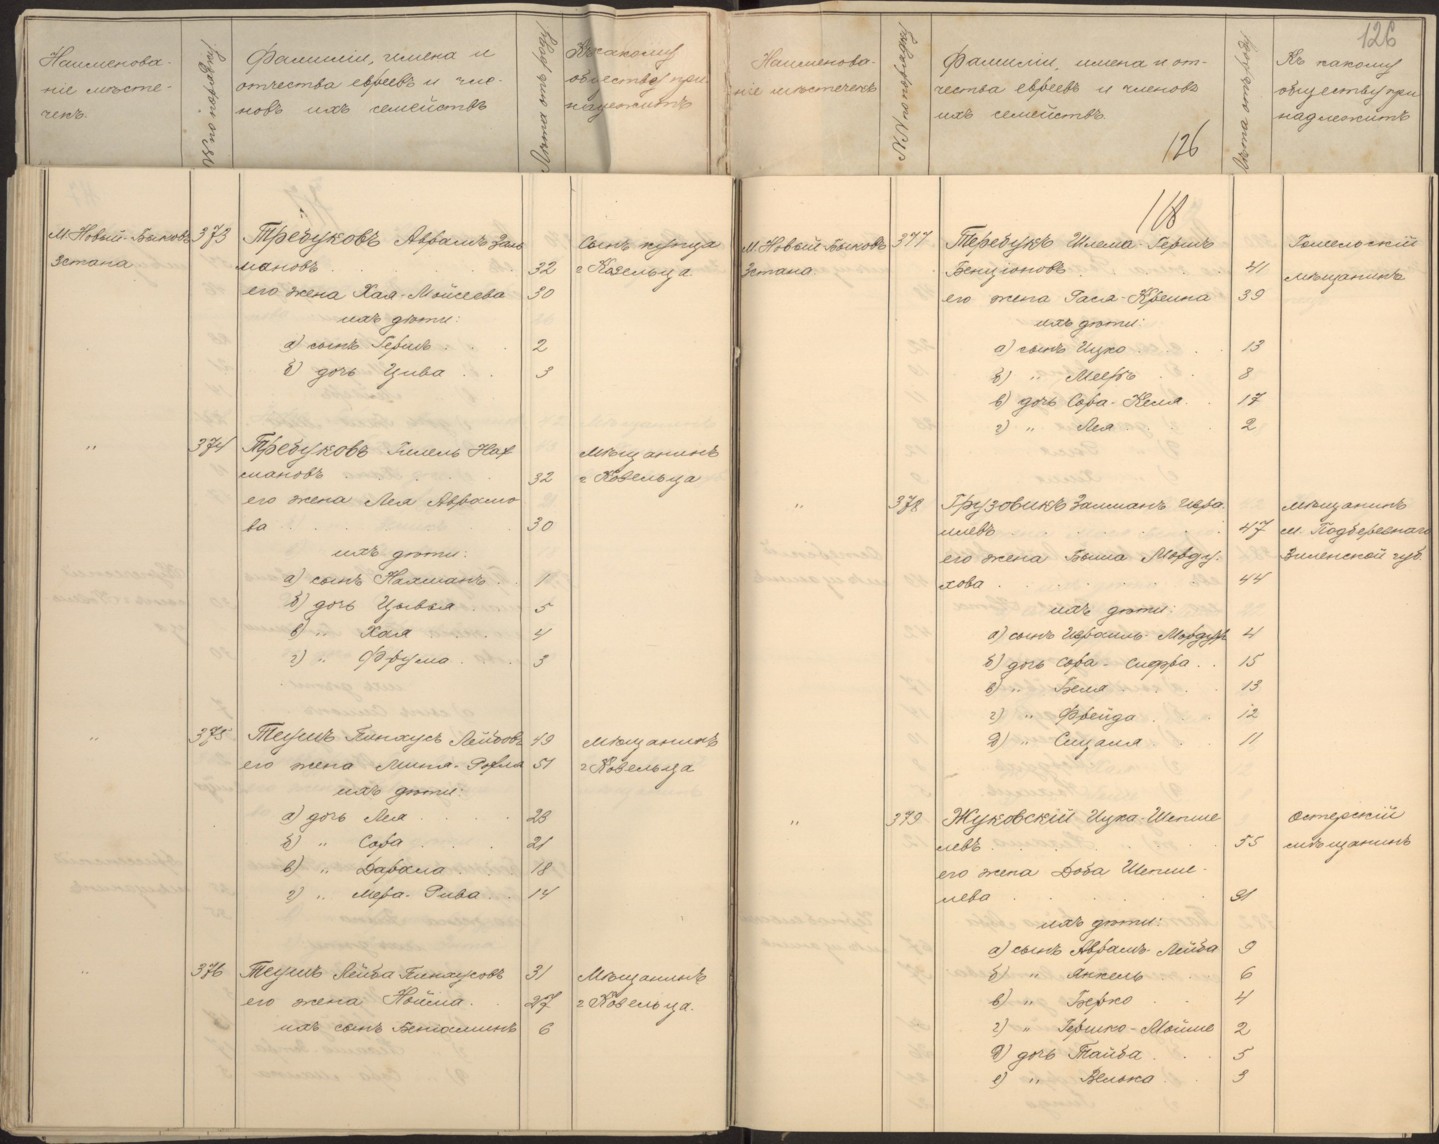 Наименова-
ніе мѣсте-
чекъ.
№ по порядку
Фамиліи, имена и
отчества евреевъ и чле-
новъ ихъ семействъ
Лѣта отъ роду
Къ какому
обществу при
надлежитъ
М. Новый-Быковъ
3 стана
373
Требуковъ Аврамъ Зал
мановъ
32
Сынъ купца
г. Козельца
его жена Хая-Мойсеева 30
ихъ дѣти:
а) сынъ Гершъ 2
б) дочь Цива 3
" 374 Требуковъ Гилель Нах
мановъ 32
Мѣщанинъ
г. Козельца
его жена Лея Аврамо
ва 30
ихъ дѣти:
а) сынъ Нахманъ 1
б) дочь Цывья 5
в) " Хая 4
г) " Фрума 3
" 375 Теушъ Пинхусъ Лейбовъ 49 Мѣщанинъ
его жена Миня-Рохля 51 г. Козельца
ихъ дѣти:
а) дочь Лея 23
б) " Сора 21
в) " Двойра 18
г) " Мера-Рива 14
" 376 Теушъ Лейба Пинхусовъ 31 Мѣщанинъ
его жена Нойма 27 г. Козельца.
ихъ сынъ Беніаминъ 6
126
Наименова-
ніе мѣстечекъ
№№ по порядку
Фамиліи, имена и от-
чества евреевъ и членовъ
ихъ семействъ.
126
Лѣта отъ роду
Къ какому
обществу при
надлежитъ
118
М. Новый Быковъ
3 стана
377
Теребукъ Шлема-Гершъ
Бенціоновъ 41
Гомельскій
мѣщанинъ
его жена Гася-Крейна 39
ихъ дѣти:
а) сынъ Ицко 13
б) " Мееръ 8
в) дочь Сора-Хея 17
г) " Лея 2
" 378 Грузовикъ Залманъ Изра
илевъ 47
мѣщанинъ
м. Подберезнаго
Виленской губ.
его жена Быша Морду-
хова 44
ихъ дѣти:
а) сынъ Израиль-Мордухъ 4
б) дочь Сора-Сифра 15
в) " Беля 13
г) " Фрейда 12
д) " 11
" 379 Жуковскій Ицка-Шепше
левъ 55
Остерскій
мѣщанинъ
его жена Доба Шепше-
лева 31
ихъ дѣти:
а) сынъ Аврамъ-Лейба 9
б) " Янкель 6
в) " Берко 4
г) " Гершко-Мойше 2
д) дочь Тайба 5
е) " Велька 3